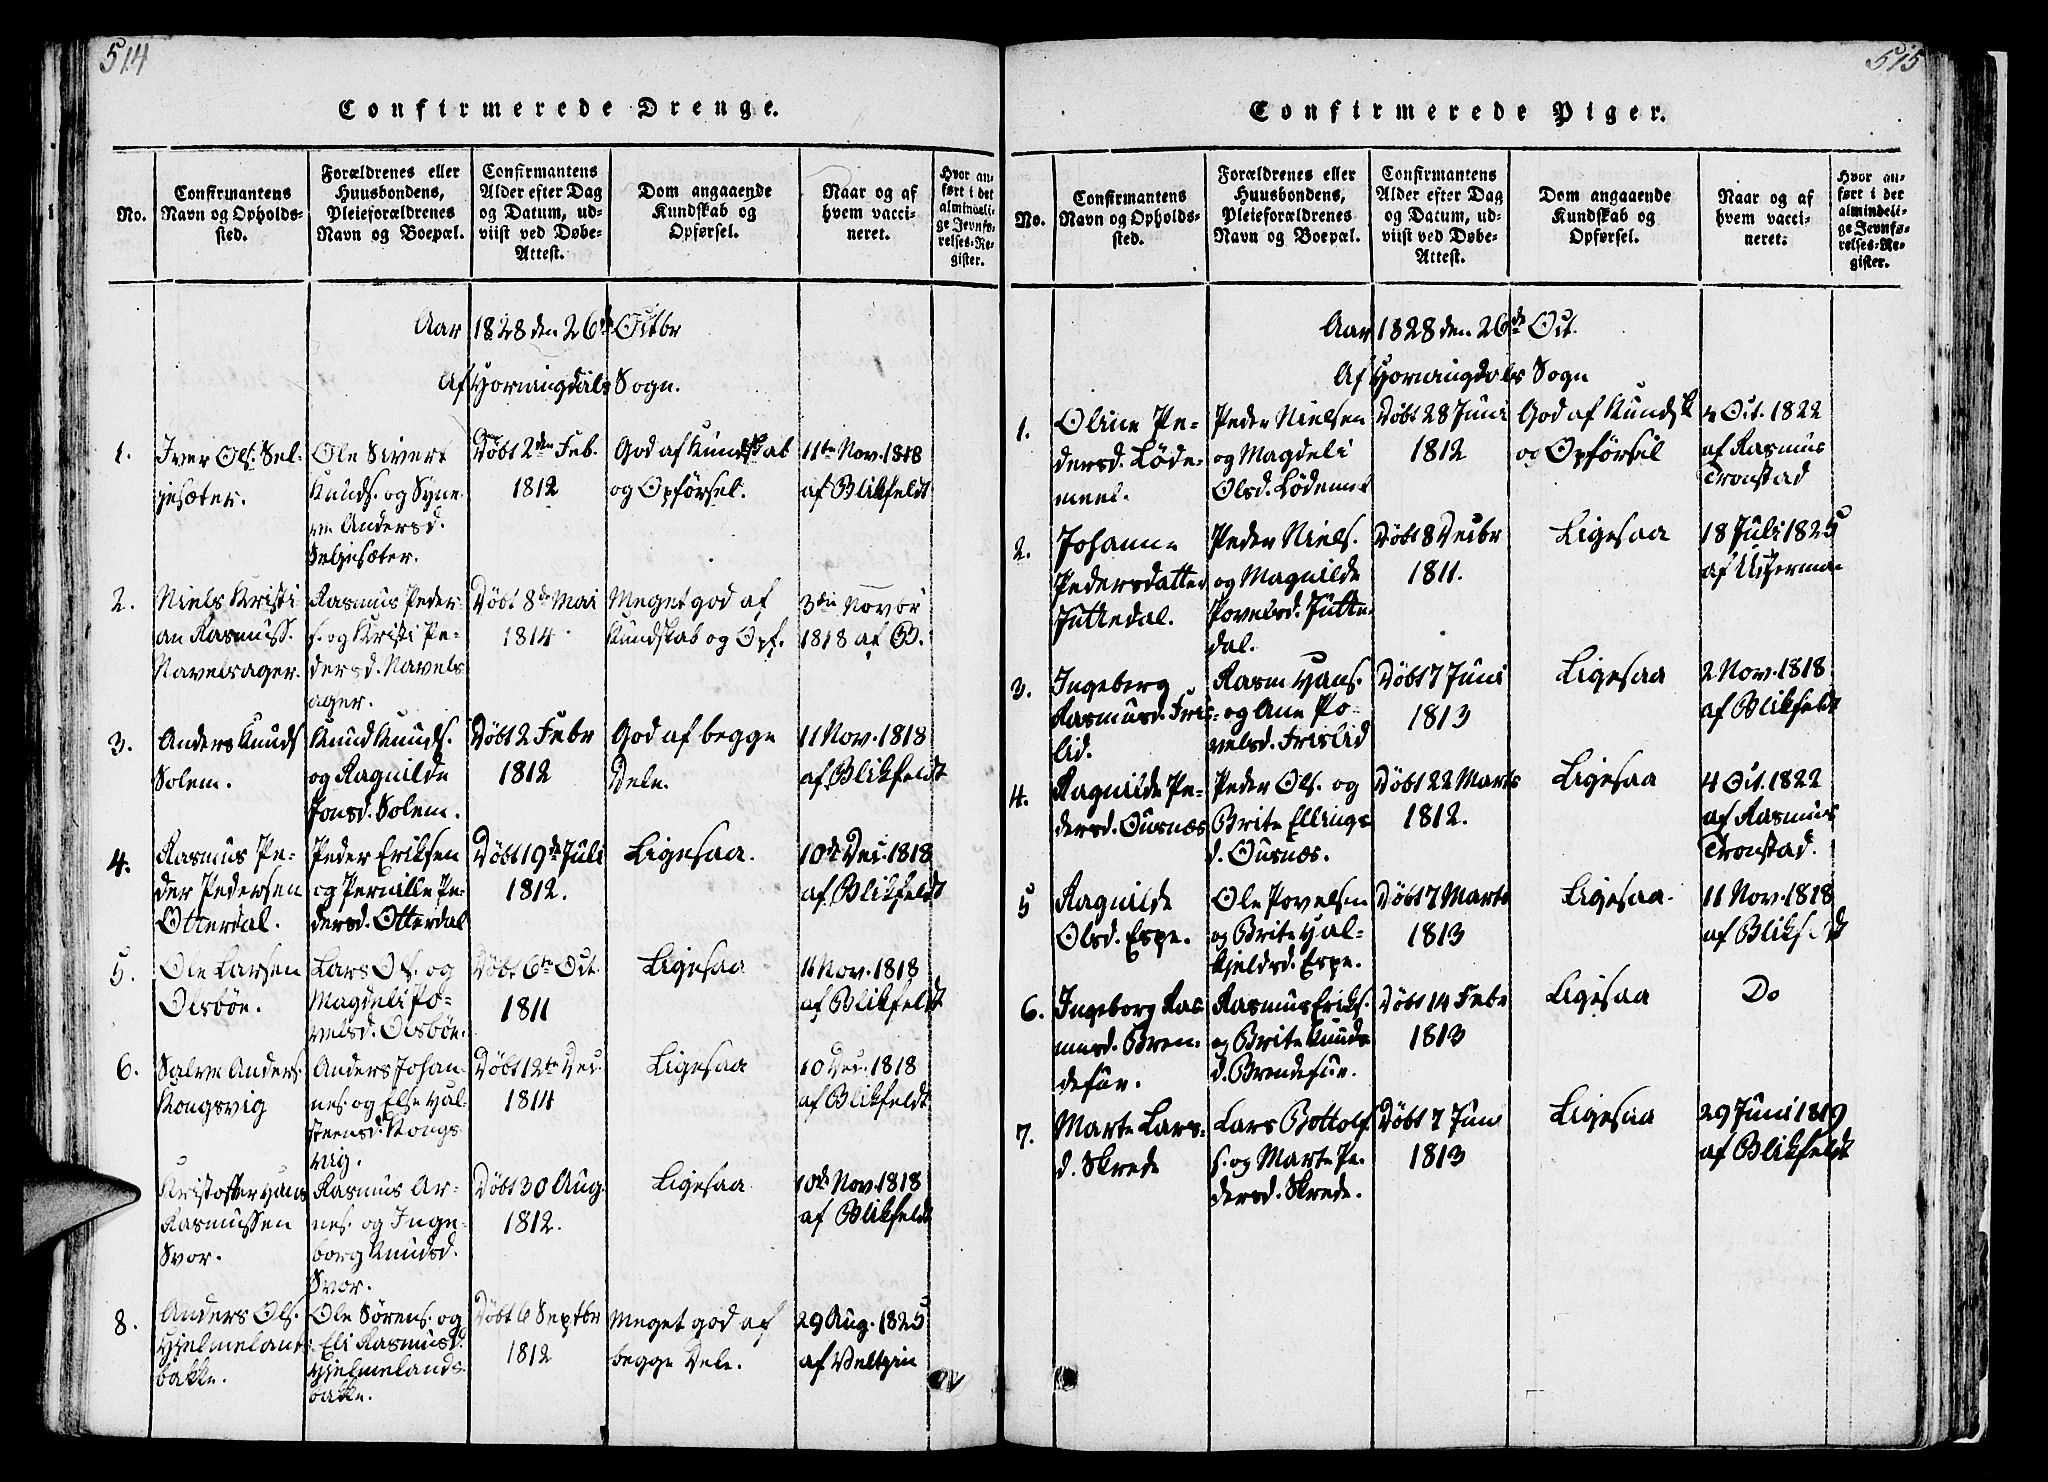 514
Confirmerede Drenge.
No.
Confirmantens
Navn og Opholds-
sted.
Forældrenes eller
Huusbondens,
Pleieforældrenes
Navn og Boepæl.
Confirmantens
Alder efter Dag
og Datum, ud-
viist ved Døbe-
Attest.
Dom angaaende
Kundskab og
Opførsel.
Naar og af
hvem vacci-
neret.
Hvor an-
ført i det
almindeli-
ge Jevnfø-
relses-Re-
gister.
Aar 1828 den 26de Octbr
Af Horningdals Sogn.
1.
Iver Ols. Sel-
jesæter.
Ole Sivert
Knuds. og Syne-
ve Andersd.
Seljesæter.
Døbt 2den Feb.
1812
God af Kundskab
og Opførsel.
11te Nov. 1818
af Blikfeldt
2.
Niels Kristi
an Rasmuss.
Navelsager.
Rasmus Peder
s. og Kristi Pe-
dersd. Navels
ager.
Døbt 8de Mai
1814
Meget god af
Kundskab og Opf.
3die Novbr
1818 af B.
3.
Anders Knuds
Solem.
Knud Knuds.
og Ragnilde
Jonsd. Solem.
Døbt 2 Febr
1812
God af begge
Dele.
11 Nov. 1818
af Blikfeldt
4.
Rasmus Pe-
der Pedersen
Otterdal.
Peder Eriksen
og Pernille Pe-
dersd. Otterdal
Døbt 19de Juli
1812.
Ligesaa.
10de Dec. 1818
af Blikfeldt
5.
Ole Larsen
Oesbøe.
Lars Ols. og
Magdeli Po-
velsd. Oesbøe.
Døbt 6te Oct.
1811
Ligesaa
11 Nov. 1818
af Blikfeldt
6.
Salve Anders.
Kongsvig
Anders Johan-
nes. og Else Hal-
steensd. Kongs
vig.
Døbt 12te Dec.
1814
Ligesaa
10 Dec. 1818
af Blikfeldt
Kristoffer Hans
Rasmussen
Svor.
Rasmus Ar-
nes. og Inge-
borg Knudsd.
Svor.
Døbt 30 Aug.
1812.
Ligesaa
10de Nov. 1818
af Blikfeldt
8.
Anders Ols.
Hjelmelands
bakke.
Ole Sørens. og
Eli Rasmusd.
Hjelmelands-
bakke.
Døbt 6 Septbr
1812
Meget god af
begge Dele.
29 Aug. 1825
af
515
Confirmerede Piger.
No.
Confirmantens
Navn og Opholds-
sted.
Forældrenes eller
Huusbondens,
Pleieforældrenes
Navn og Boepæl.
Confirmantens
Alder efter Dag
og Datum, ud-
viist ved Døbe-
Attest.
Dom angaaende
Kundskab og
Opførsel.
Naar og af
hvem vacci-
neret.
Hvor an-
ført i det
almindeli-
ge Jevnfø-
relses-Re-
gister.
Aar 1828 den 26de Oct.
Af Horningdals Sogn
1.
Oline Pe-
dersd. Løde-
meel.
Peder Nielsen
og Magdeli
Olsd. Lødemel
Døbt 28 Juni
1812
God af Kundsk
og Opførsel
4 Oct. 1822
af Rasmus
Tronstad
2.
Johanne
Pedersdatter
Juttedal.
Peder Niels.
og Magnilde
Povelsd. Jutte-
dal.
Døbt 8 Decbr
1811.
Ligesaa
18 Juli 1825
af
3.
Ingeberg
Rasmusd. Fris-
lid.
Rasm Hans.
og Ane Po-
velsd. Frislid
Døbt 7 Juni
1813
Ligesaa
2 Nov. 1818
af Blikfeldt
4.
Ragnilde Pe-
dersd. Ousnæs
Peder Ols. og
Brite Ellings
d. Ousnæs.
Døbt 22 Marts
1812.
Ligesaa
4 Oct. 1822
af Rasmus
Tronstad.
5
Ragnilde
Olsd. Espe.
Ole Povelsen
og Brite Hal-
kjeldsd. Espe.
Døbt 7 Marts
1813
Ligesaa.
11 Nov. 1818
af Blikfeldt
6.
Ingeborg Ras
musd. Bren-
defur.
Rasmus Eriks.
og Brite Knuds
d. Brendefur.
Døbt 14 Febr
1813
Ligesaa
Do
7.
Marte Lars-
d. Skrede
Lars Bottolf
s. og Marte Pe-
dersd. Skrede.
Døbt 7 Juni
1813
Ligesaa
29 Juni 1819
af Blikfeldt